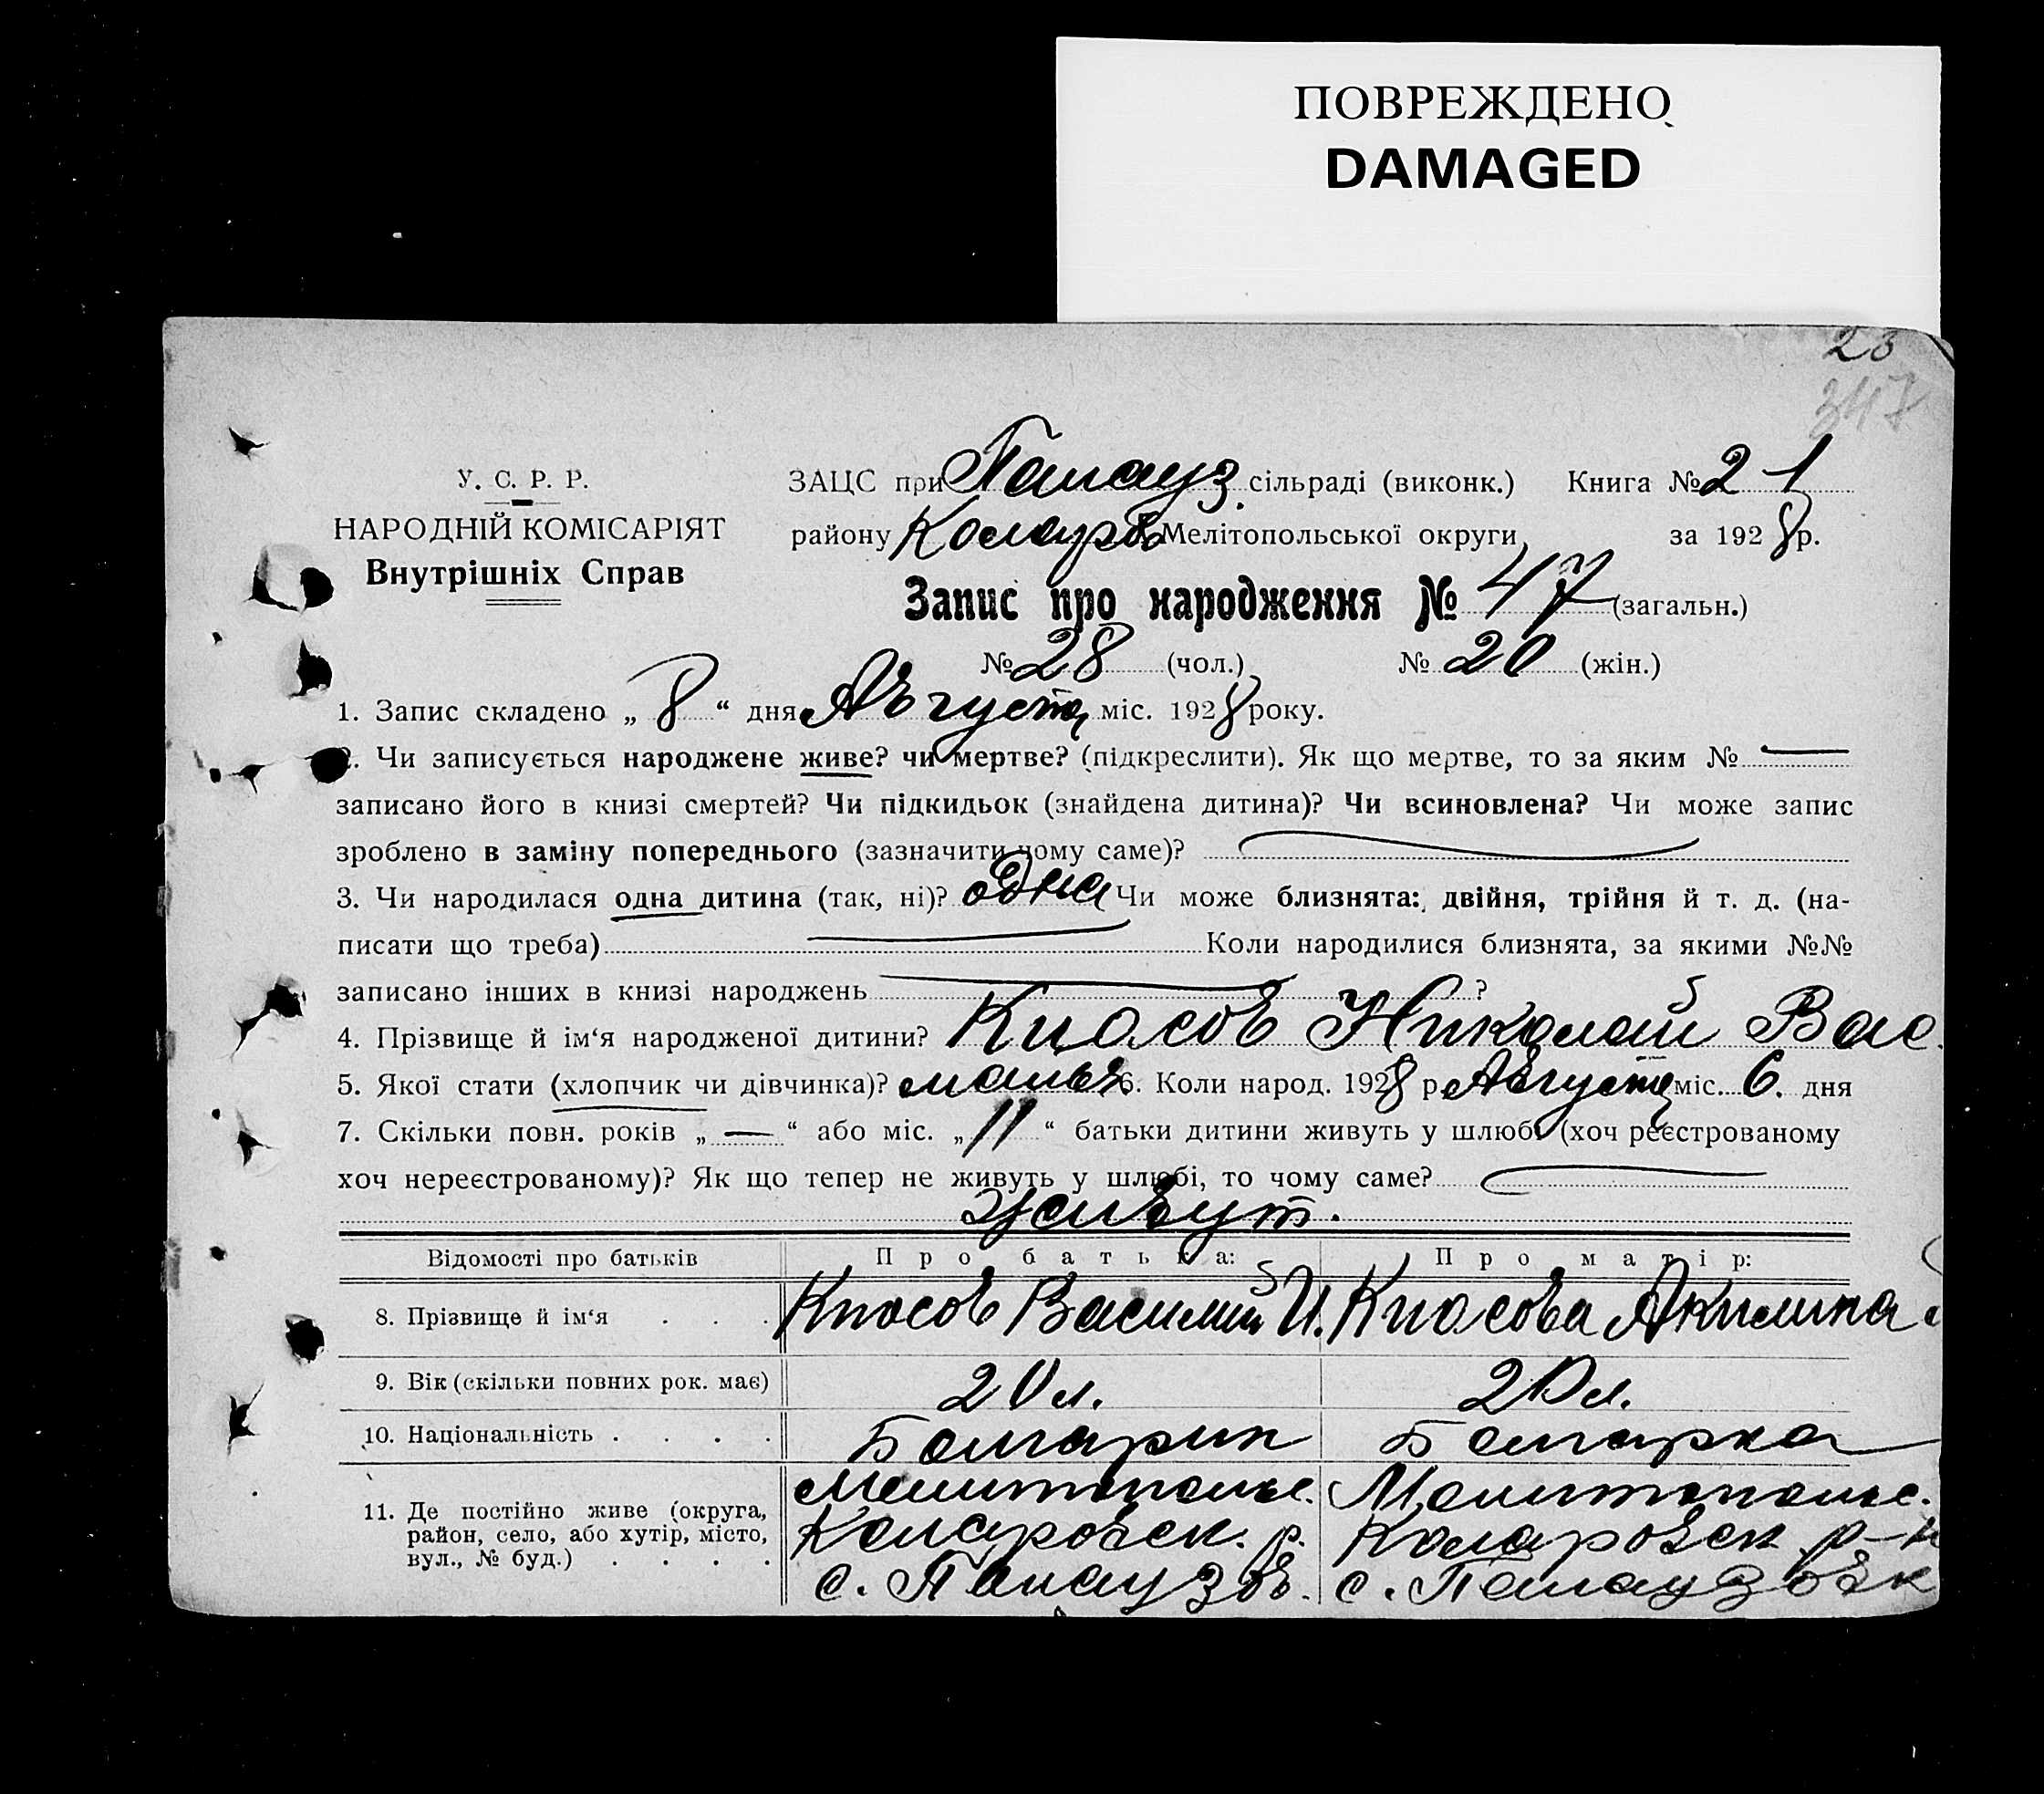 ПОВРЕЖДЕНО
DAMAGED
23
347
У. С. Р. Р.
НАРОДНІЙ КОМІСАРІЯТ
Внутрішніх Справ
ЗАЦС при Палауз. сільраді (виконк.) Книга № 21
району Коларов Мелітопольської округи за 1928 р.
Запис про народження № 47 (загальн.)
№ 28 (чол.) № 20 (жін.)
1. Запис складено „ 8 “ дня Августа міс. 1928 року.
2. Чи записується народжене живе? чи мертве? (підкреслити). Як що мертве, то за яким № —
записано його в книзі смертей? Чи підкидьок (знайдена дитина)? Чи всиновлена? Чи може запис
зроблено в заміну попереднього (зазначити чому саме)?
3. Чи народилася одна дитина (так, ні)? одна Чи може близнята: двійня, трійня й т. д. (на-
писати що треба) — Коли народилися близнята, за якими №№
записано інших в книзі народжень — ?
4. Прізвище й ім‘я народженої дитини? Киосов Николай Вас.
5. Якої стати (хлопчик чи дівчинка)? мальч 6. Коли народ. 1928 р. Августа міс. 6. дня
7. Скільки повн. років „ — “ або міс. „ 11 “ батьки дитини живуть у шлюбі (хоч реєстрованому
хоч нереєстрованому)? Як що тепер не живуть у шлюбі, то чому саме?
живут.
Відомості про батьків Про батька: Про матір:
8. Прізвище й ім‘я . . . Киосов Василий И. Киосова Акилина
9. Вік (скільки повних рок. має) 20 л. 20 л.
10. Національність . . . . Болгарин Болгарка
11. Де постійно живе (округа, район, село, або хутір, місто, вул., № буд.) . . . .
Мелитопольс. Мелитопольс.
Коларовск. р. Коларовск р-н
с. Палаузов. с. Палаузовк